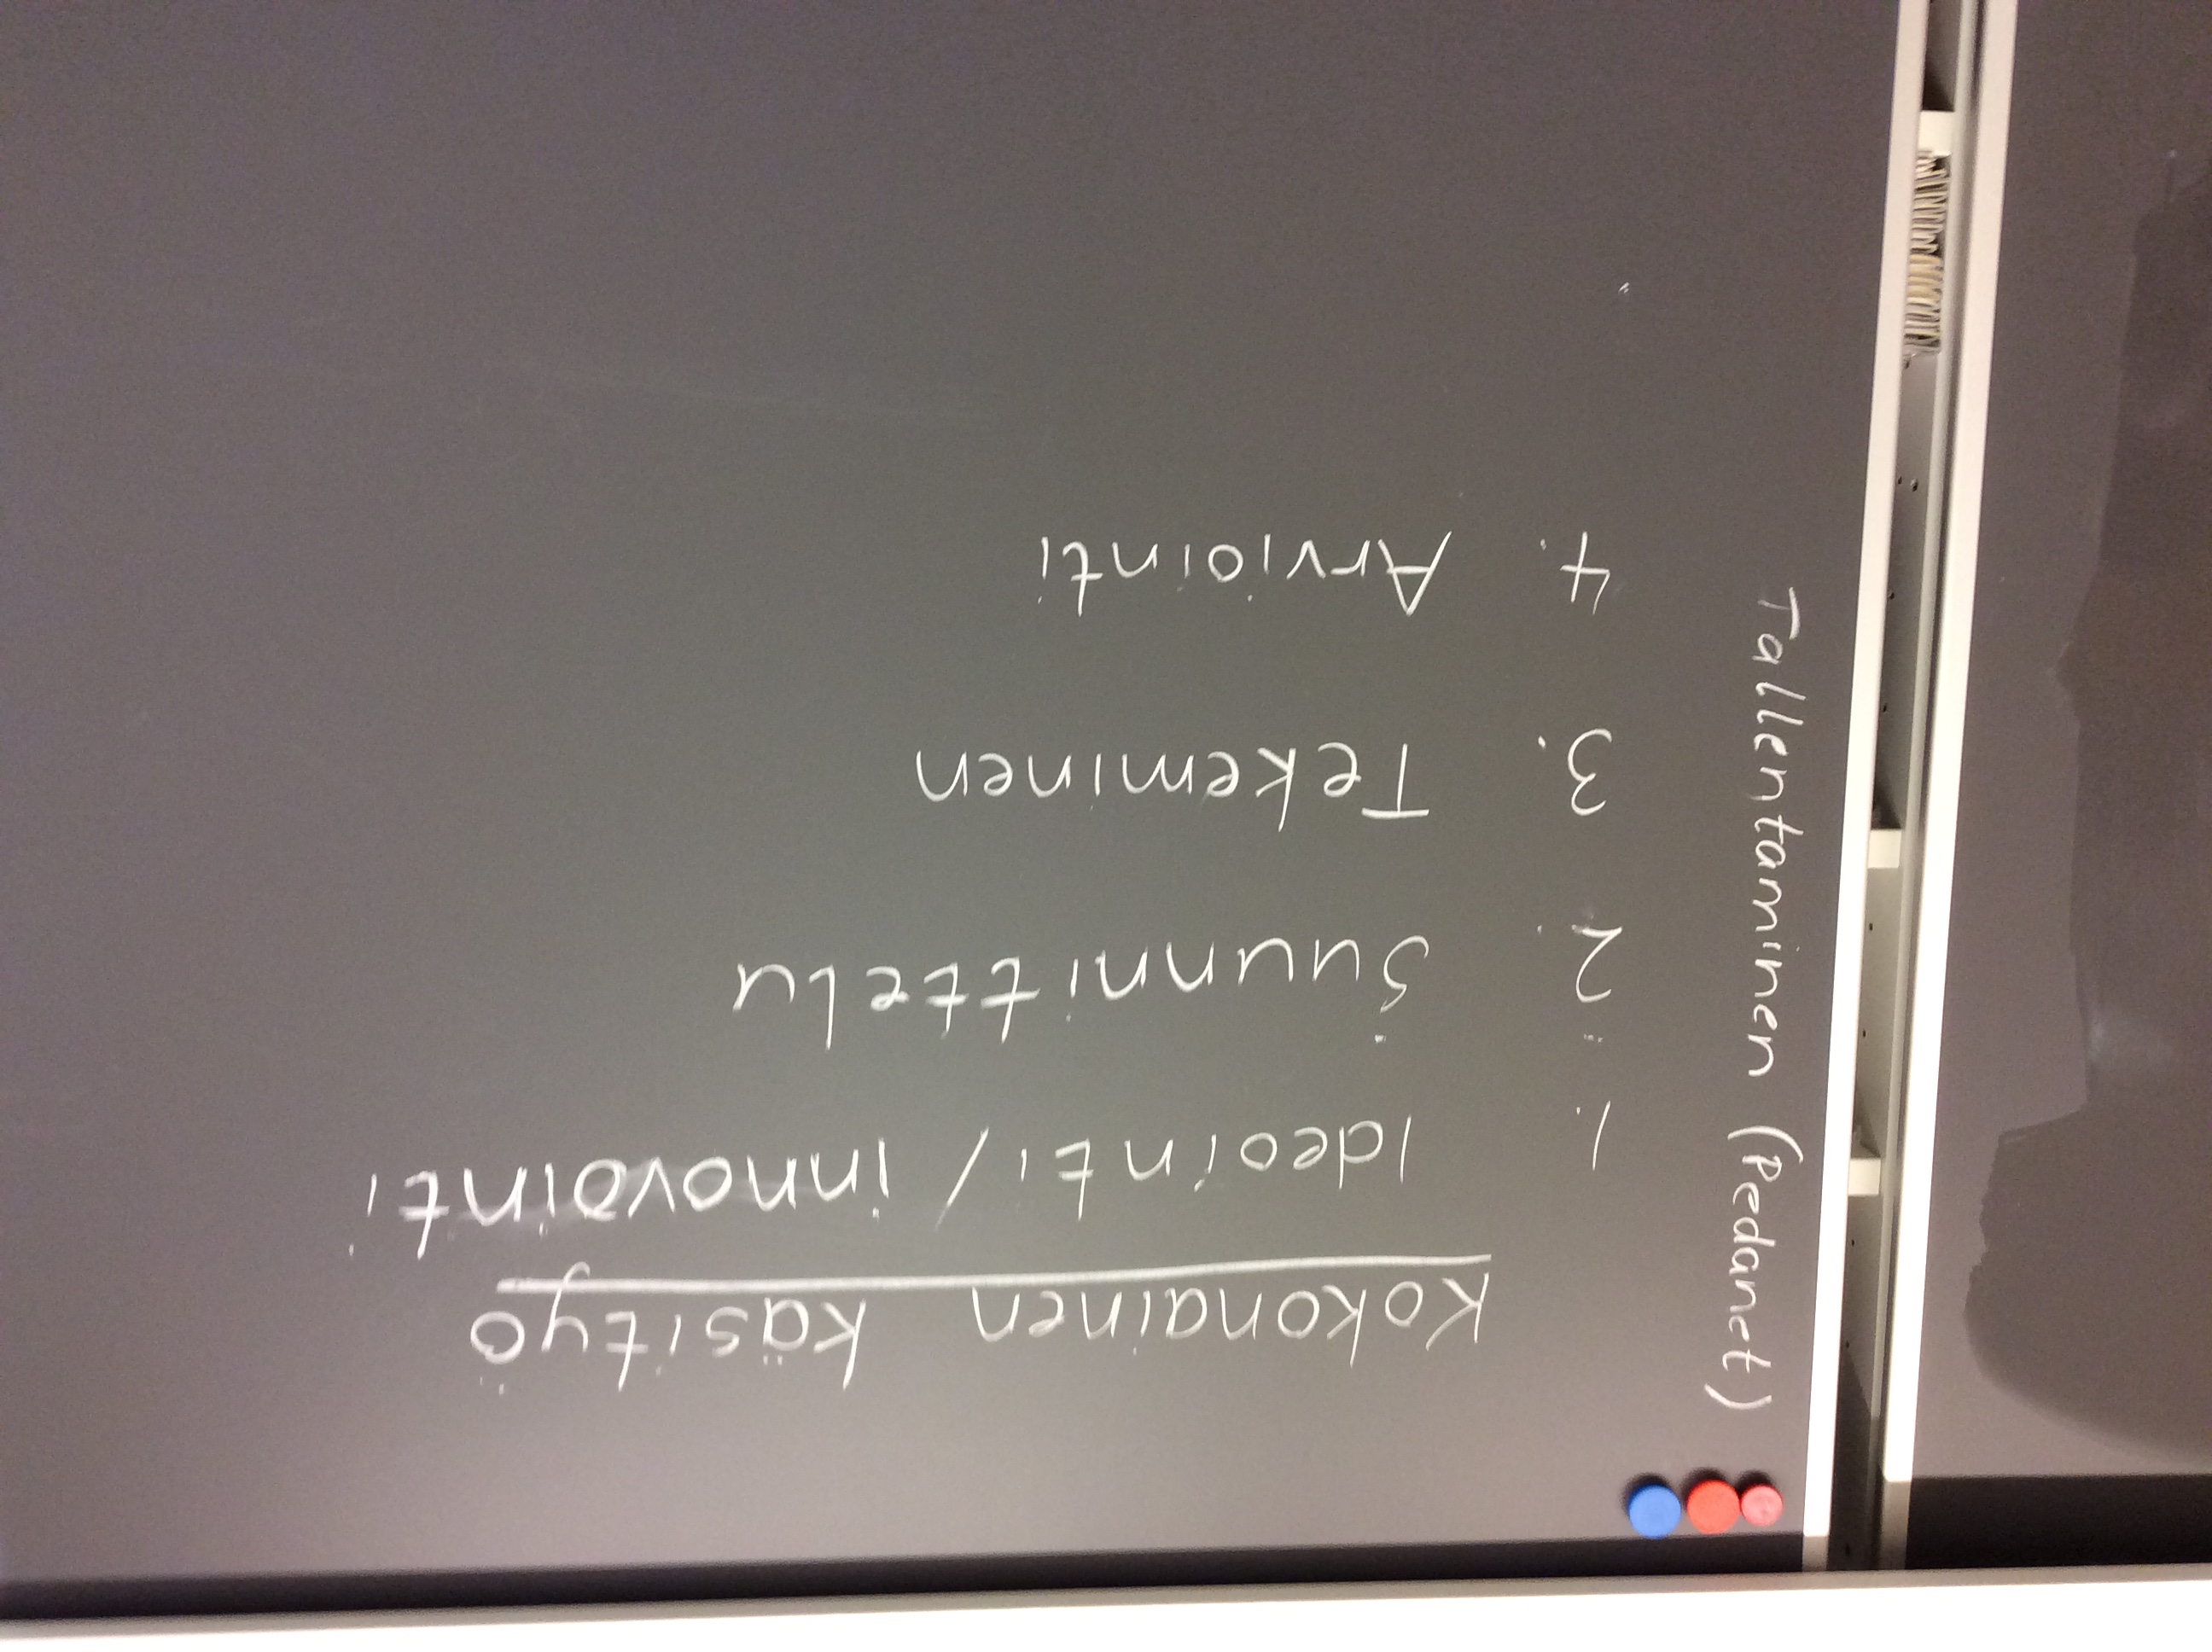 Kokonainen käsityö
1. Ideointi / innovointi
2. Suunnittelu
3. Tekeminen
4. Arviointi
Tallentaminen (Pedanet)